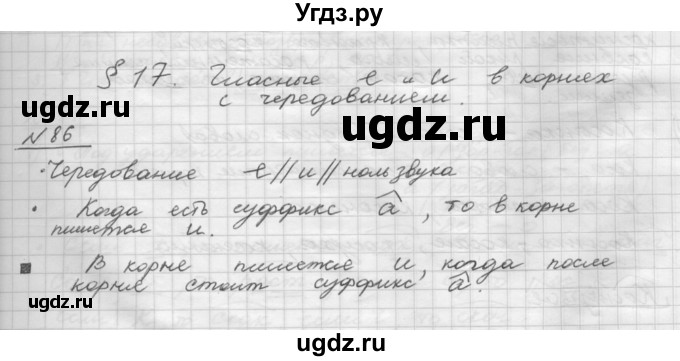 Угдз.ру
§ 17. Гласные е и и в корнях
с чередованием.
ugdz.ru
ugdz.ru
N 86
• Чередование е//и//ноль звука
• Когда есть суффикс а, то в корне
пишется и.
ugdz.ru
В корне пишется и, когда после
корня стоит суффикс а.
ugdz.ru
ugdz.ru